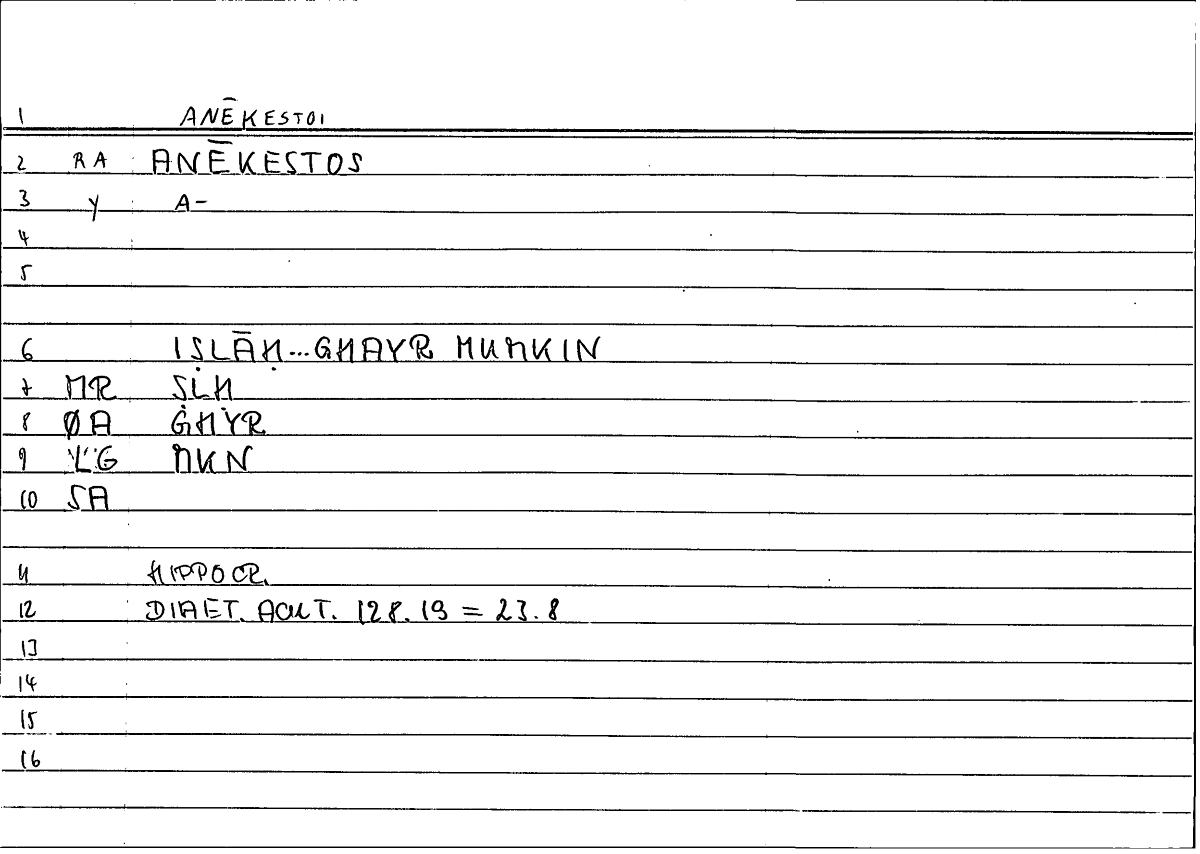 1 ANĒKESTOI
2 RA ANĒKESTOS
3 Y A-
4
5
6 IṢLĀḤ...GHAYR MUMKIN
7 MR ṢLḤ
8 ØA ĠHẎR
9 ĽG MKN
10 SA
11 HIPPOCR.
12 DIAET. ACUT. 128.19 = 23.8
13
14
15
16